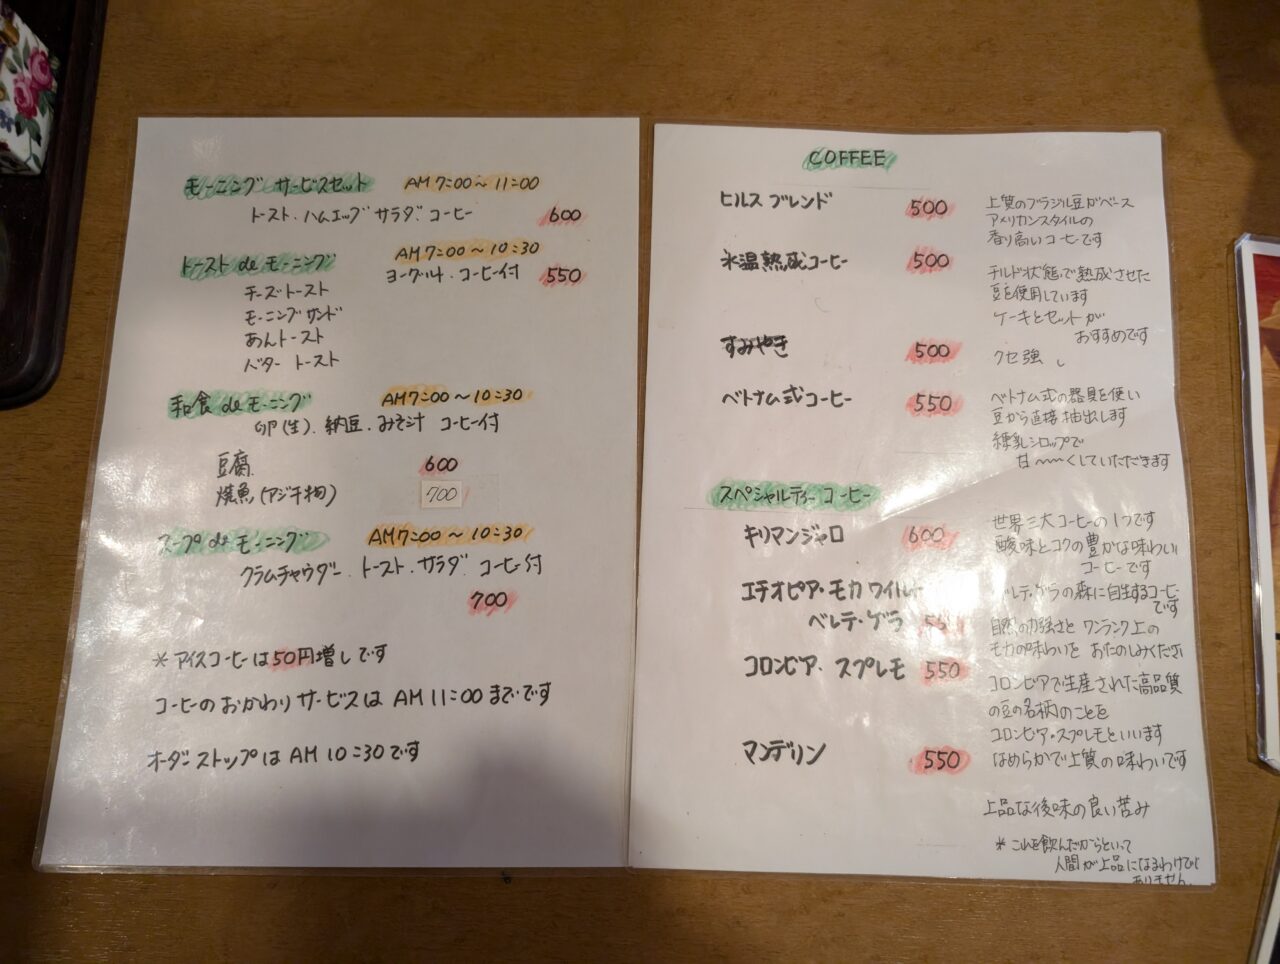 モーニング サービスセット AM7:00〜11:00
トースト.ハムエッグ サラダ.コーヒー 600
トースト de モーニング AM7:00〜10:30
ヨーグルト.コーヒー付 550
チーズトースト
モーニングサンド
あんトースト
バタートースト
和食 de モーニング AM7:00〜10:30
卵(生).納豆.みそ汁 コーヒー付
豆腐 600
焼魚(アジ干物) 700
スープ de モーニング AM7:00〜10:30
クラムチャウダー.トースト.サラダ.コーヒー付
700
*アイスコーヒーは50円増しです
コーヒーのおかわりサービスは AM11:00までです
オーダーストップは AM10:30です
COFFEE
ヒルス ブレンド 500 上質のブラジル豆がベース
アメリカンスタイルの
香り高いコーヒーです
氷温熟成コーヒー 500 チルド状態で熟成させた
豆を使用しています
ケーキとセットが
おすすめです
すみやき 500 クセ強し
ベトナム式コーヒー 550 ベトナム式の器具を使い
豆から直接抽出します
練乳シロップで
甘〜〜〜くしていただきます
スペシャルティーコーヒー
キリマンジャロ 600 世界三大コーヒーの1つです
酸味とコクの豊かな味わい
コーヒーです
エチオピア・モカ ワイルド
ベレテ・ゲラ ベレテ・ゲラの森に自生するコーヒー
です
自然の力強さと ワンランク上の
モカの味わいを おたのしみください
コロンビア・スプレモ 550 コロンビアで生産された高品質
の豆の名柄のことを
コロンビア・スプレモといいます
なめらかで上質の味わいです
マンデリン 550
上品な後味の良い苦み
*これを飲んだからといって
人間が上品になるわけでは
ありません.